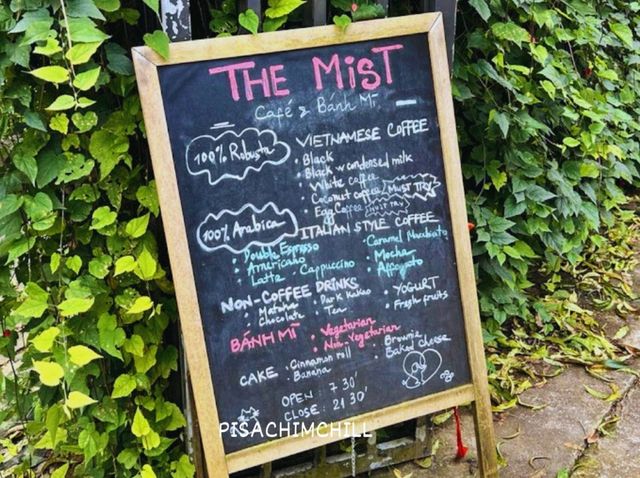 THE MIST
Café & Bánh Mì
100% Robusta
VIETNAMESE COFFEE
• Black
• Black w condensed milk
• White coffee
• Coconut coffee MUST TRY
• Egg coffee MUST TRY
100% Arabica
ITALIAN STYLE COFFEE
• Double Espresso
• Americano
• Latte
• Cappuccino
• Caramel Macchiato
• Mocha
• Affogato
NON-COFFEE DRINKS
• Matcha
• Chocolate
• Dark Kakao
• Tea
• YOGURT
Fresh fruits
BÁNH MÌ
• Vegetarian
• Non-Vegetarian
CAKE
• Cinnamon roll
• Banana
• Brownie
• Baked Cheese
OPEN : 7 30'
CLOSE : 21 30'
PISACHIMCHILL